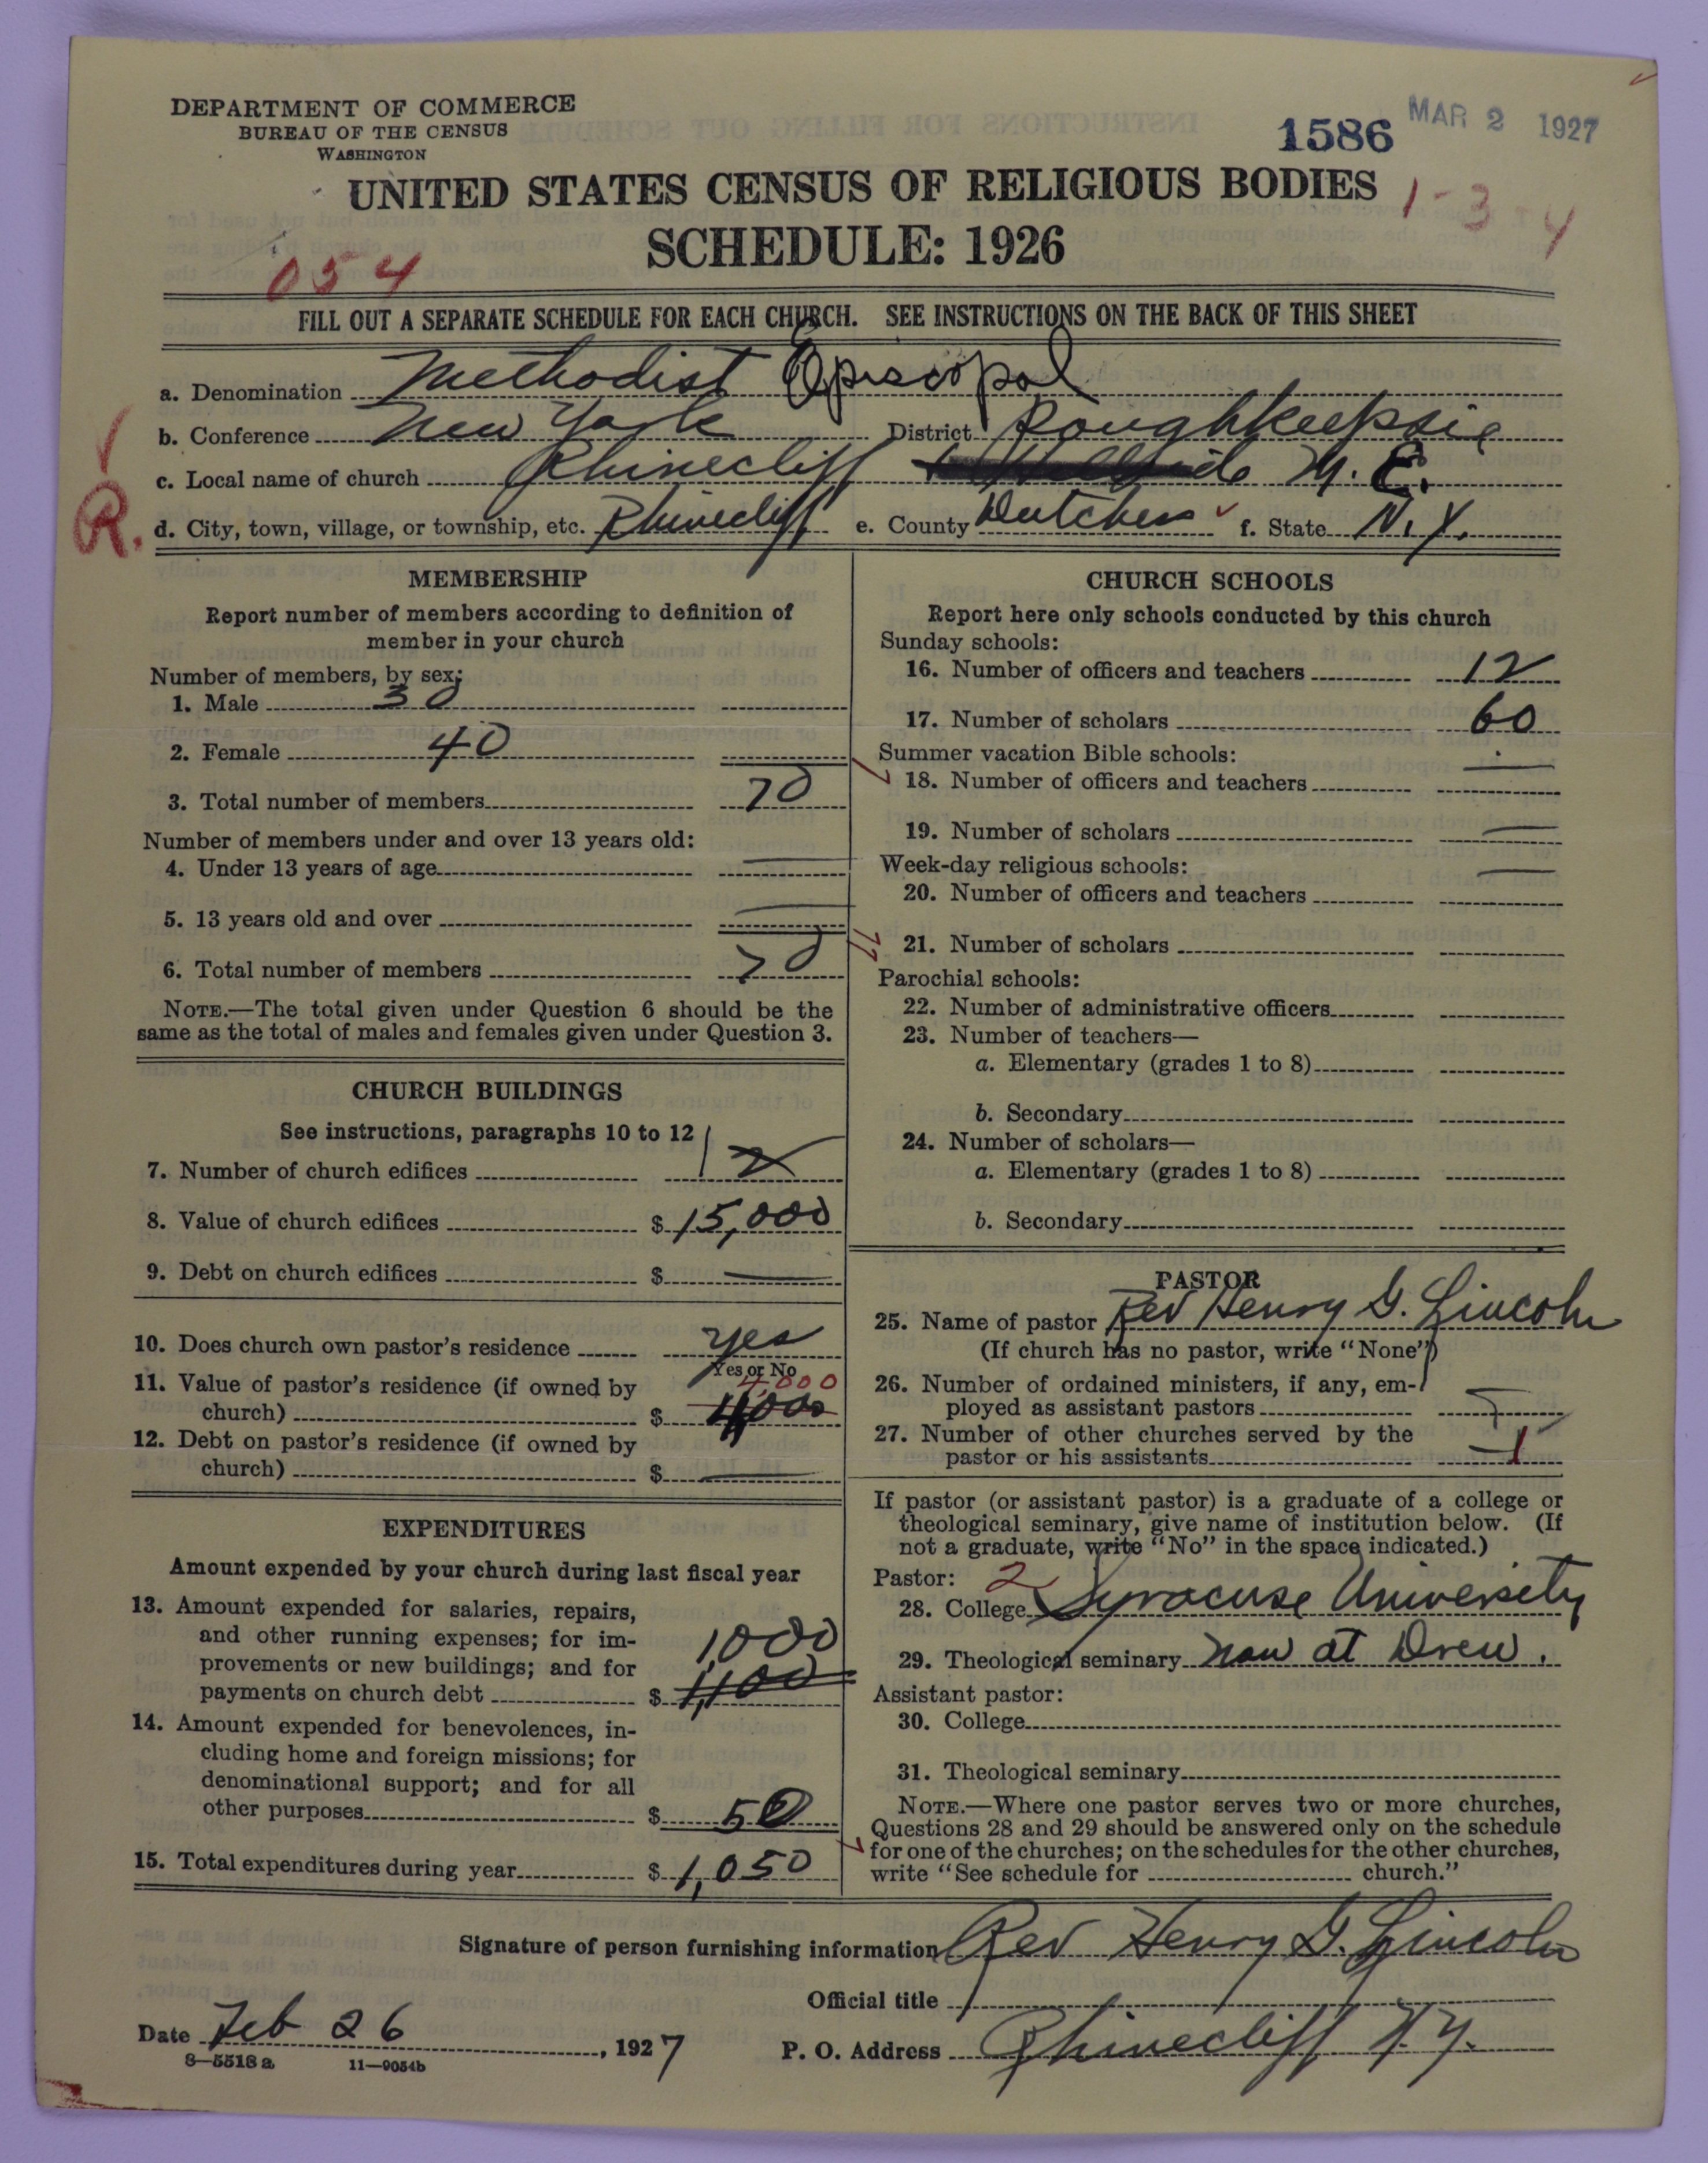 DEPARTMENT OF COMMERCE
BUREAU OF THE CENSUS
WASHINGTON
1586 MAR 2 1927
UNITED STATES CENSUS OF RELIGIOUS BODIES
1-3-4
SCHEDULE: 1926
054
FILL OUT A SEPARATE SCHEDULE FOR EACH CHURCH. SEE INSTRUCTIONS ON THE BACK OF THIS SHEET
a. Denomination Methodist Episcopal
b. Conference New York District Poughkeepsie
c. Local name of church Rhinecliff M. E.
R.
d. City, town, village, or township, etc. Rhinecliff e. County Dutchess f. State N. Y.
MEMBERSHIP
Report number of members according to definition of
member in your church
Number of members, by sex:
1. Male 30
2. Female 40
3. Total number of members 70
Number of members under and over 13 years old:
4. Under 13 years of age —
5. 13 years old and over —
6. Total number of members 70
NOTE.—The total given under Question 6 should be the
same as the total of males and females given under Question 3.
CHURCH BUILDINGS
See instructions, paragraphs 10 to 12
7. Number of church edifices 1 2
8. Value of church edifices $ 15,000
9. Debt on church edifices $ —
10. Does church own pastor's residence yes
Yes or No
11. Value of pastor's residence (if owned by 4,000
church) $ 4000
12. Debt on pastor's residence (if owned by
church) $ —
EXPENDITURES
Amount expended by your church during last fiscal year
13. Amount expended for salaries, repairs,
and other running expenses; for im- 1,000
provements or new buildings; and for
payments on church debt $ 1,100
14. Amount expended for benevolences, in-
cluding home and foreign missions; for
denominational support; and for all
other purposes $ 50
15. Total expenditures during year $ 1,050
CHURCH SCHOOLS
Report here only schools conducted by this church
Sunday schools:
16. Number of officers and teachers 12
17. Number of scholars 60
Summer vacation Bible schools: —
18. Number of officers and teachers
19. Number of scholars —
Week-day religious schools: —
20. Number of officers and teachers
21. Number of scholars
Parochial schools:
22. Number of administrative officers
23. Number of teachers—
a. Elementary (grades 1 to 8)
b. Secondary
24. Number of scholars—
a. Elementary (grades 1 to 8)
b. Secondary
PASTOR
25. Name of pastor Rev Henry G. Lincoln
(If church has no pastor, write "None")
26. Number of ordained ministers, if any, em-
ployed as assistant pastors —
27. Number of other churches served by the
pastor or his assistants 1
If pastor (or assistant pastor) is a graduate of a college or
theological seminary, give name of institution below. (If
not a graduate, write "No" in the space indicated.)
Pastor: 2
28. College Syracuse University
29. Theological seminary now at Drew.
Assistant pastor:
30. College
31. Theological seminary
NOTE.—Where one pastor serves two or more churches,
Questions 28 and 29 should be answered only on the schedule
for one of the churches; on the schedules for the other churches,
write "See schedule for church."
Signature of person furnishing information Rev Henry G. Lincoln
Official title
Date Feb 26, 1927 P. O. Address Rhinecliff N.Y.
8—5518 a 11—9054b